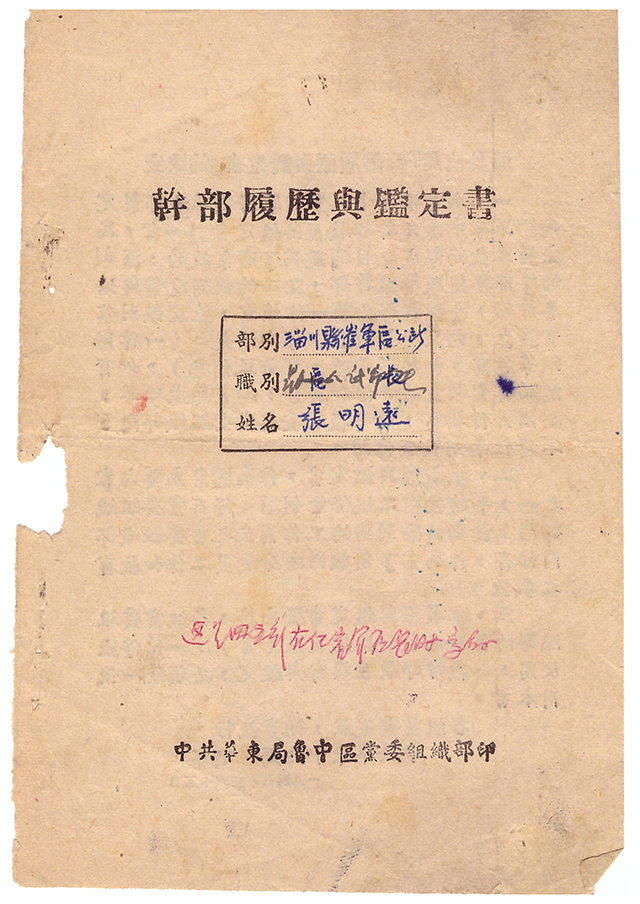 幹部履歷與鑑定書
部別 淄川縣崔軍區公所
職別 區
姓名 張明遠
這是四五年在仁 時
中共華東局魯中區黨委組織部印